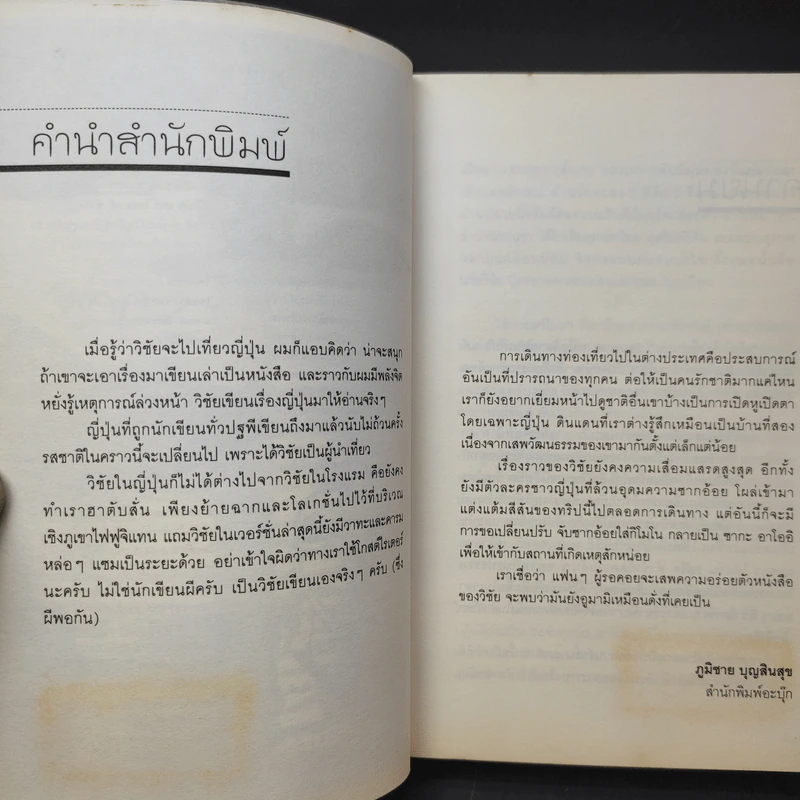 คำนำสำนักพิมพ์
เมื่อรู้ว่าวิชัยจะไปเที่ยวญี่ปุ่น ผมก็แอบคิดว่า น่าจะสนุก
ถ้าเขาจะเอาเรื่องมาเขียนเล่าเป็นหนังสือ และราวกับผมมีพลังจิต
หยั่งรู้เหตุการณ์ล่วงหน้า วิชัยเขียนเรื่องญี่ปุ่นมาให้อ่านจริงๆ
ญี่ปุ่นที่ถูกนักเขียนทั่วปฐพีเขียนถึงมาแล้วนับไม่ถ้วนครั้ง
รสชาติในคราวนี้จะเปลี่ยนไป เพราะได้วิชัยเป็นผู้นำเที่ยว
วิชัยในญี่ปุ่นก็ไม่ได้ต่างไปจากวิชัยในโรงแรม คือยังคง
ทำเราฮาตับสั่น เพียงย้ายฉากและโลเกชั่นไปไว้ที่บริเวณ
เชิงภูเขาไฟฟูจิแทน แถมวิชัยในเวอร์ชั่นล่าสุดนี้ยังมีวาทะและคารม
หล่อๆ แซมเป็นระยะด้วย อย่าเข้าใจผิดว่าทางเราใช้โกสต์ไรเตอร์
นะครับ ไม่ใช่นักเขียนผีครับ เป็นวิชัยเขียนเองจริงๆ ครับ (ซึ่ง
ผีพอกัน)
การเดินทางท่องเที่ยวไปในต่างประเทศคือประสบการณ์
อันเป็นที่ปรารถนาของทุกคน ต่อให้เป็นคนรักชาติมากแค่ไหน
เราก็ยังอยากเยี่ยมหน้าไปดูชาติอื่นเขาบ้างเป็นการเปิดหูเปิดตา
โดยเฉพาะญี่ปุ่น ดินแดนที่เราต่างรู้สึกเหมือนเป็นบ้านที่สอง
เนื่องจากเสพวัฒนธรรมของเขามากันตั้งแต่เล็กแต่น้อย
เรื่องราวของวิชัยยังคงความเสื่อมแสรดสูงสุด อีกทั้ง
ยังมีตัวละครชาวญี่ปุ่นที่ล้วนอุดมความซากอ้อย โผล่เข้ามา
แต่งแต้มสีสันของทริปนี้ไปตลอดการเดินทาง แต่อันนี้ก็จะมี
การขอเปลี่ยนปรับ จับซากอ้อยใส่กิโมโน กลายเป็น ซากะ อาโออิ
เพื่อให้เข้ากับสถานที่เกิดเหตุสักหน่อย
เราเชื่อว่า แฟนๆ ผู้รอคอยจะเสพความอร่อยตัวหนังสือ
ของวิชัย จะพบว่ามันยังอูมามิเหมือนดั่งที่เคยเป็น
ภูมิชาย บุญสินสุข
สำนักพิมพ์อะบุ๊ก